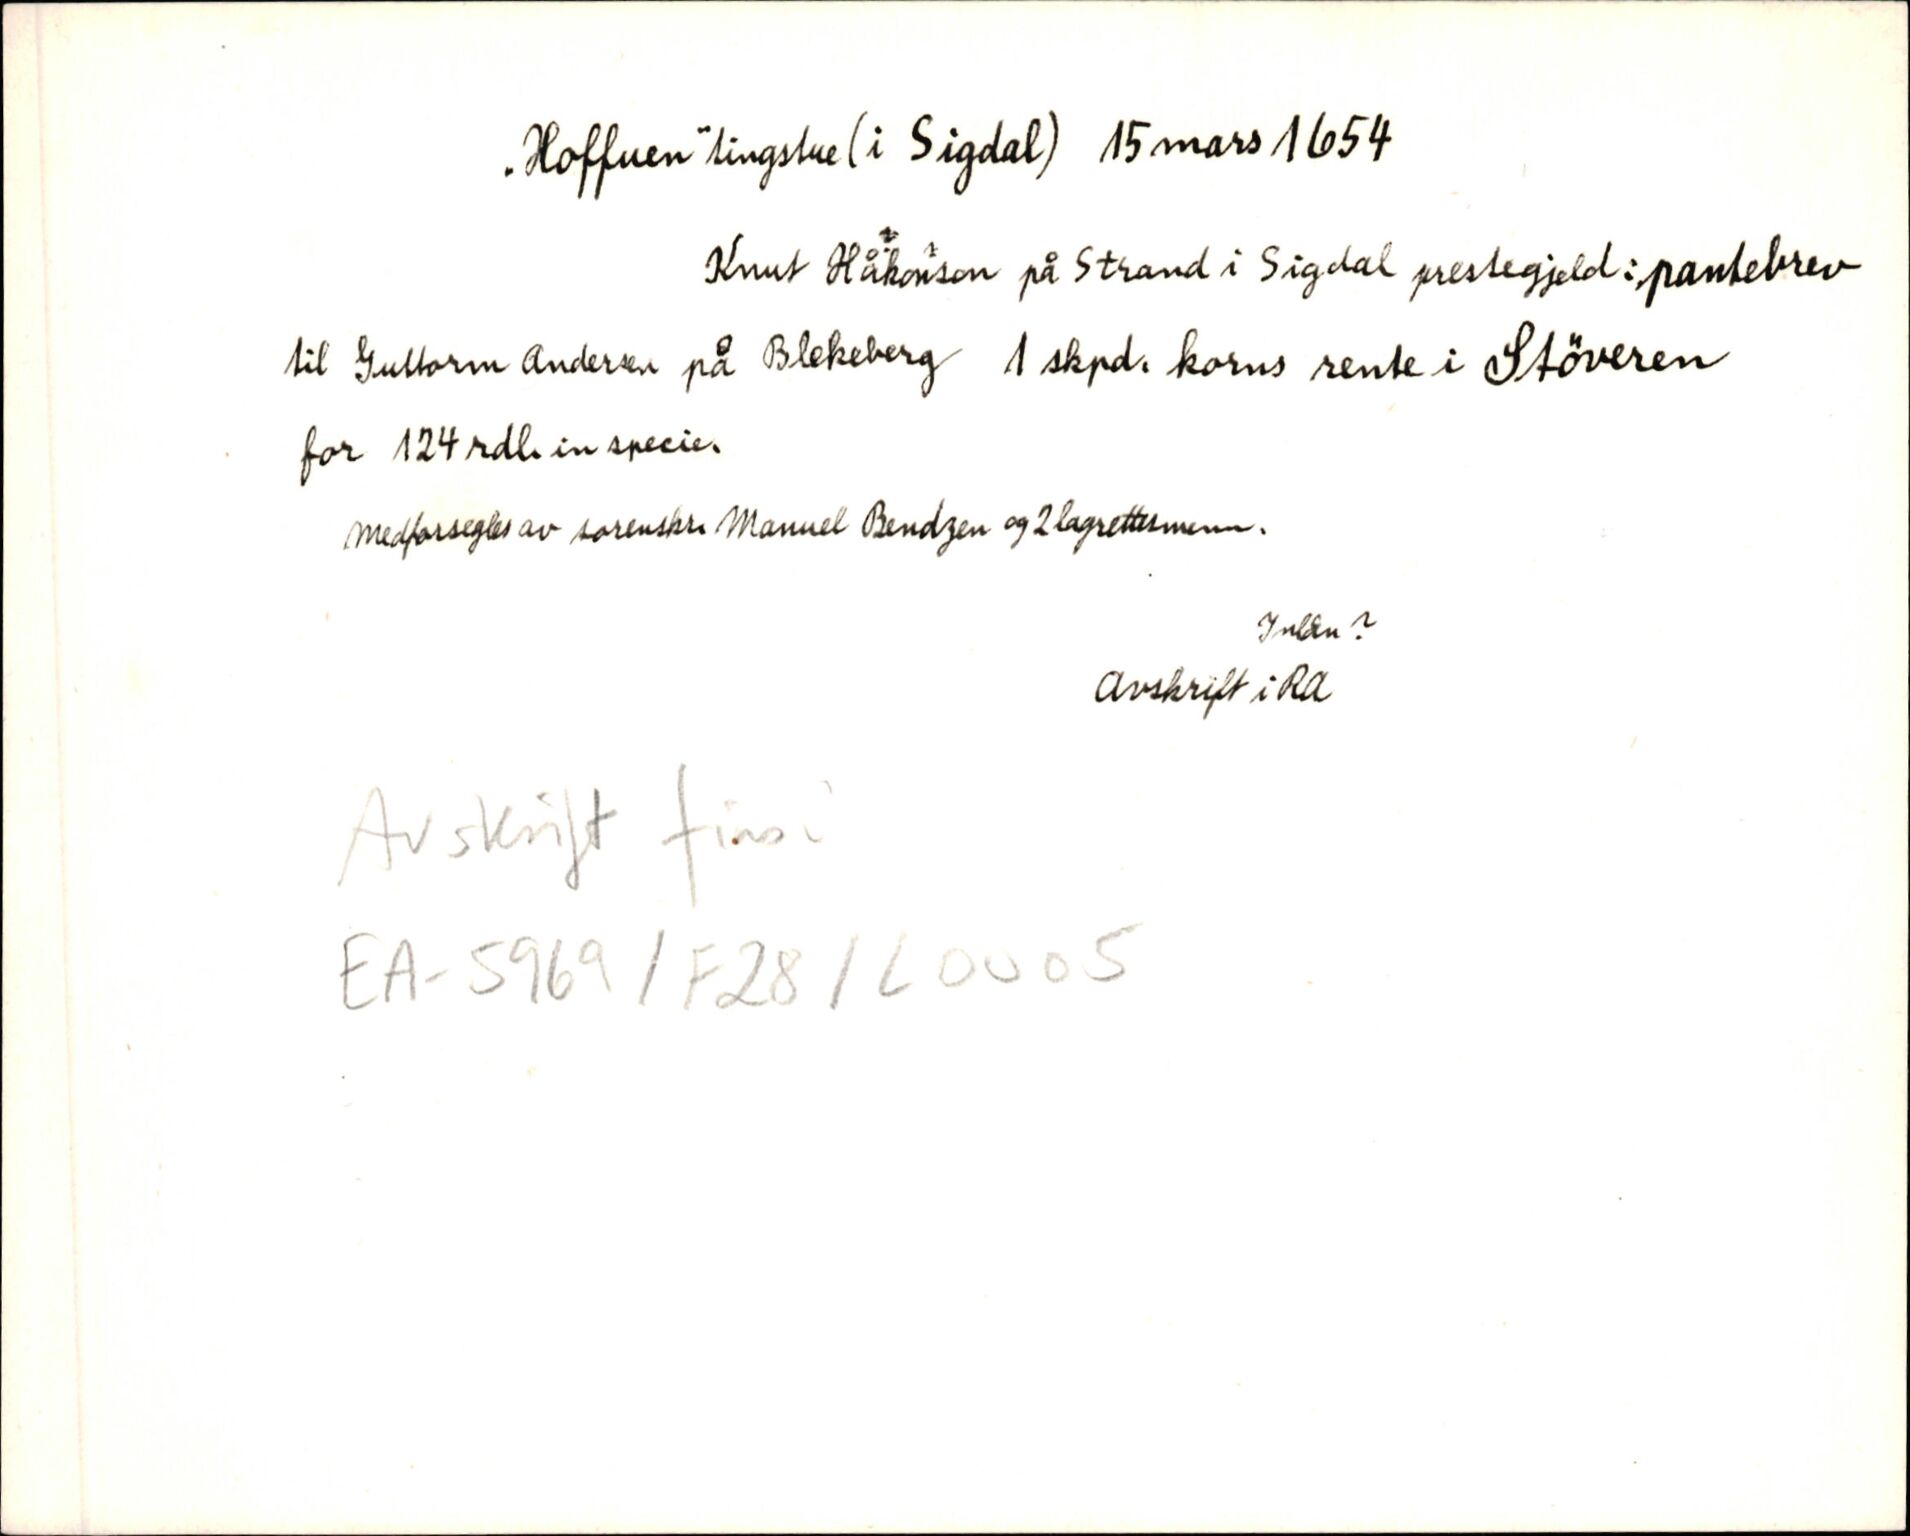 „Hoffuen" tingstue (i Sigdal) 15 mars 1654
Knut Håkonson på Strand i Sigdal prestegjeld: pantebrev
til Guttorm Andersen på Blekeberg 1 skpd. korns rente i Stöveren
for 124 rdl. in specie.
Medforsegles av sorenskr. Manuel Bendzen og 2 lagrettesmenn.
Avskrift i RA
Avskrift fins i
EA-5969/F28/L0005